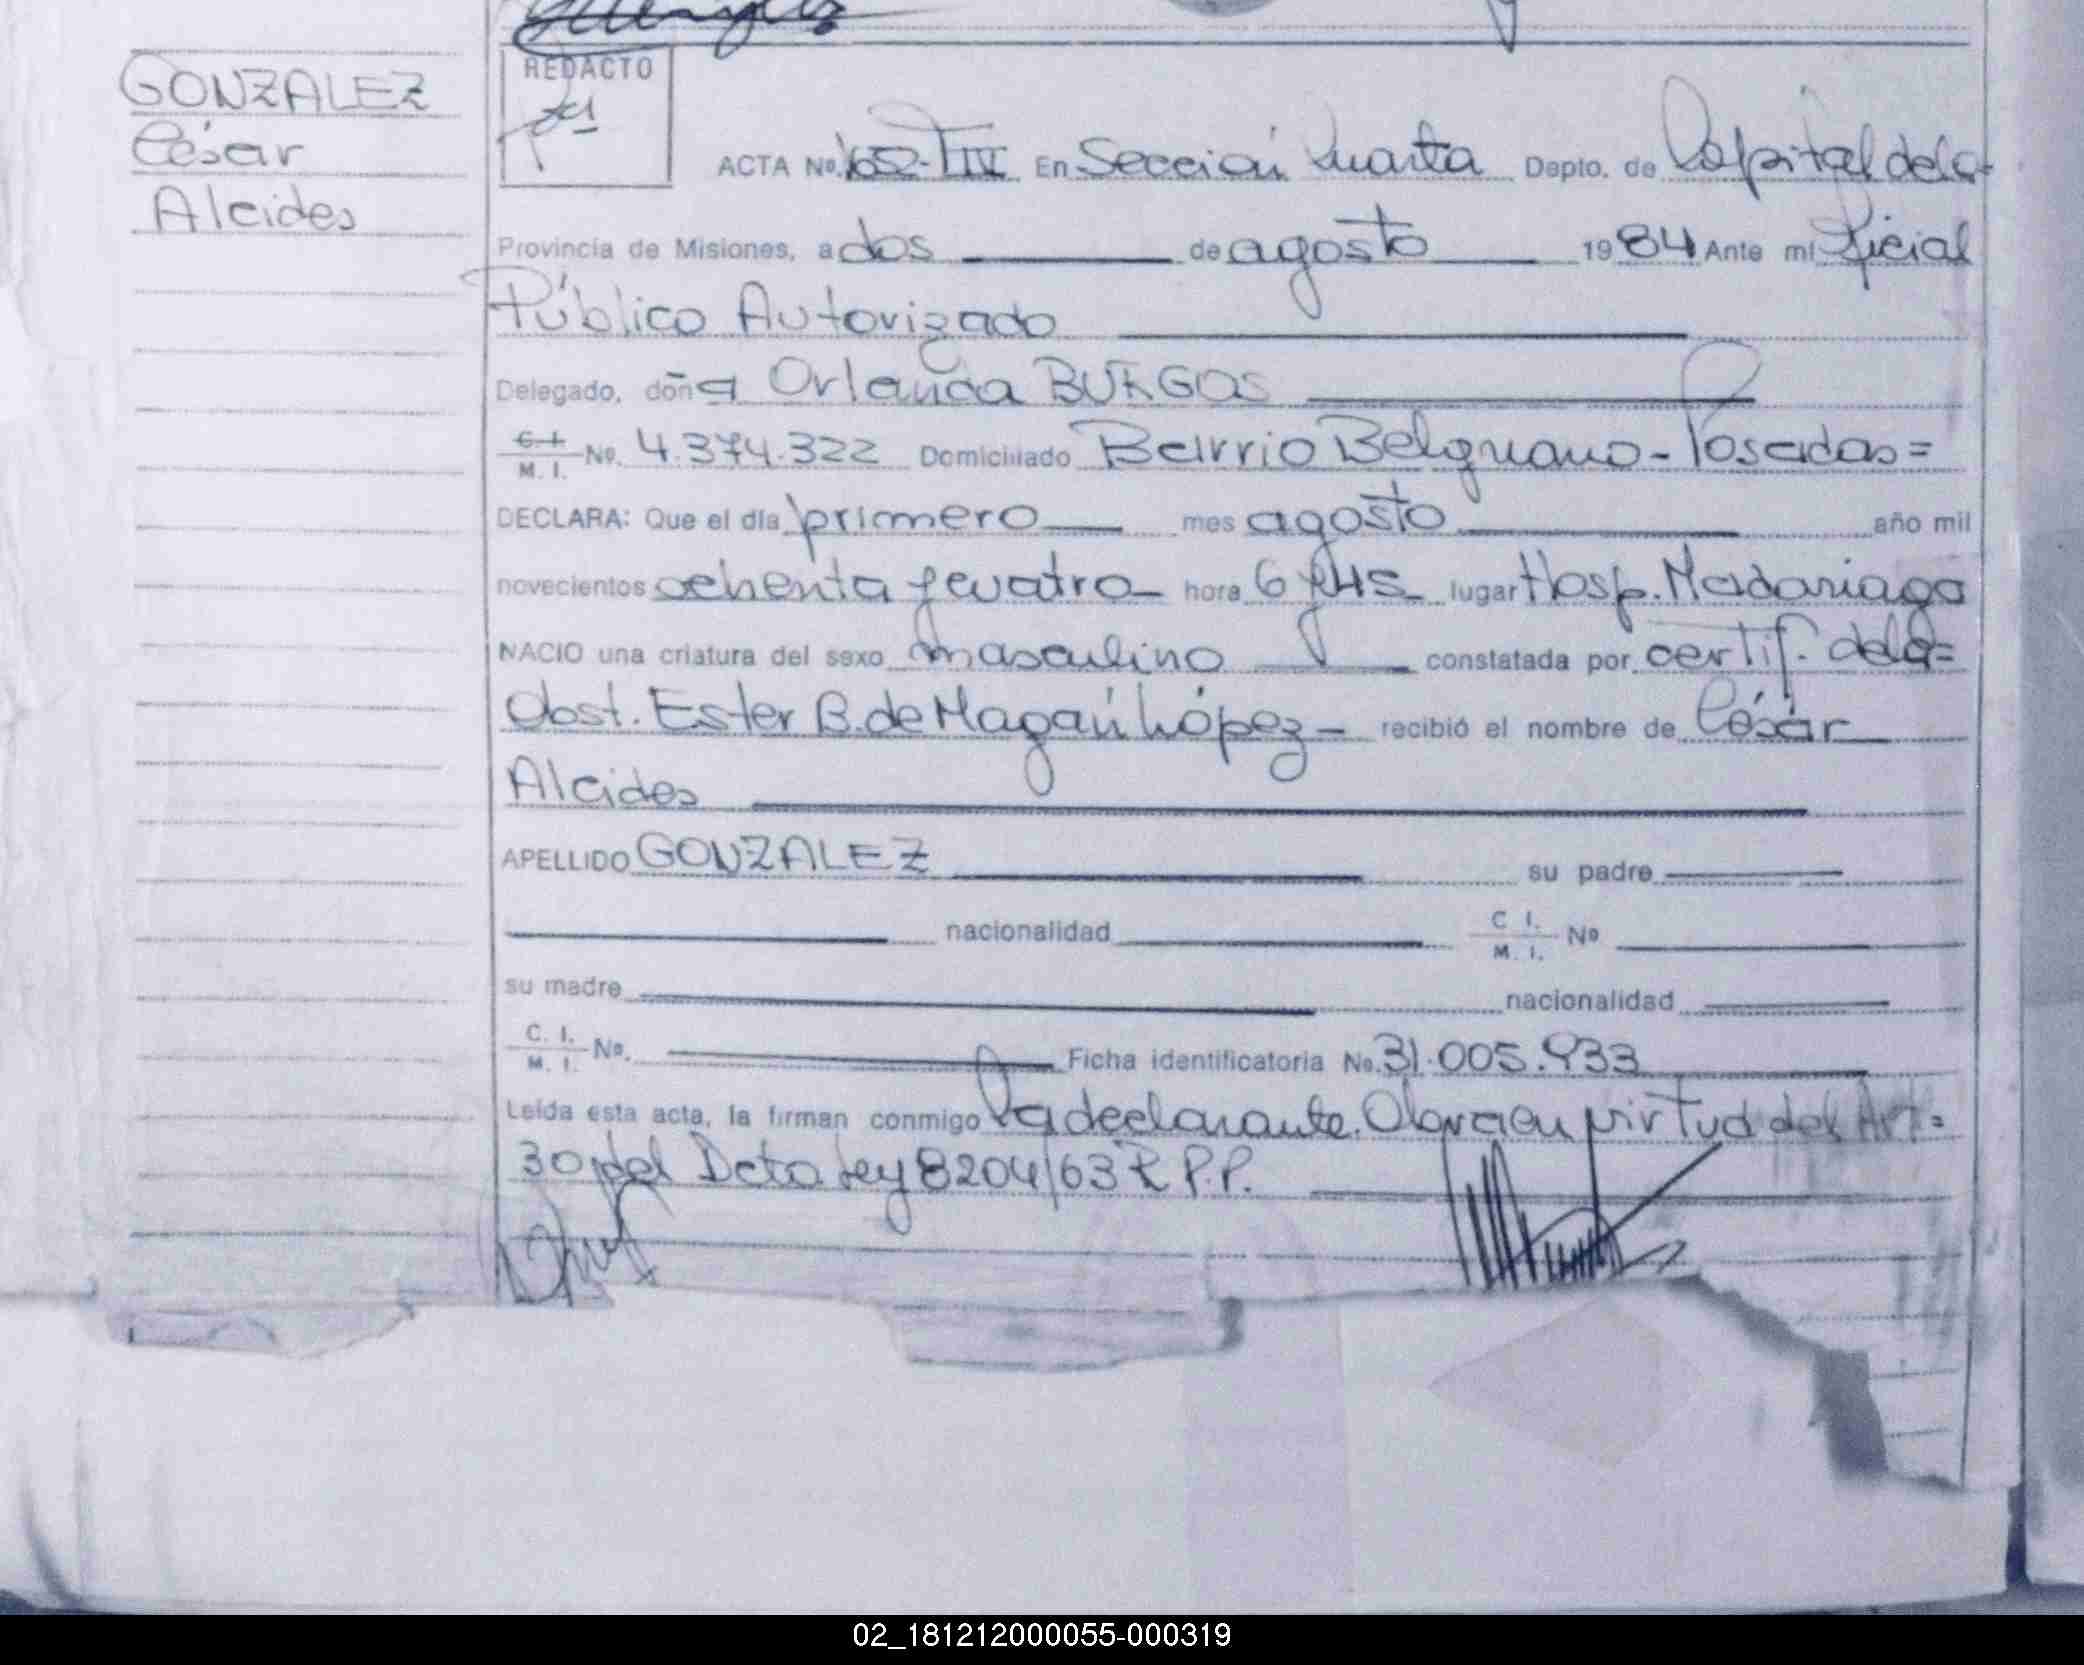 GONZALEZ
César
Alcides
REDACTO
ACTA Nº. 1652-TIV En Sección Cuarta Depto. de Capital de la
Provincia de Misiones, a dos de agosto 1984 Ante mi Oficial
Público Autorizado
Delegado, doña Orlanda BURGOS
C. I. M. I. Nº. 4.374.322 Domiciliado Barrio Belgrano - Posadas =
DECLARA: Que el día primero mes agosto año mil
novecientos ochenta y cuatro hora 6 y 45 lugar Hosp. Madariaga
NACIO una criatura del sexo masculino constatada por certif. de la =
Obst. Ester B. de Magán López - recibió el nombre de César
Alcides
APELLIDO GONZALEZ su padre
nacionalidad C. I. M. I. Nº
su madre nacionalidad
C. I. M. I. Nº. Ficha identificatoria No. 31.005.933
Leída esta acta, la firman conmigo la declarante. Obra en virtud del Art. =
30 del Dcto Ley 8204/63 R.P.P.
02_181212000055-000319